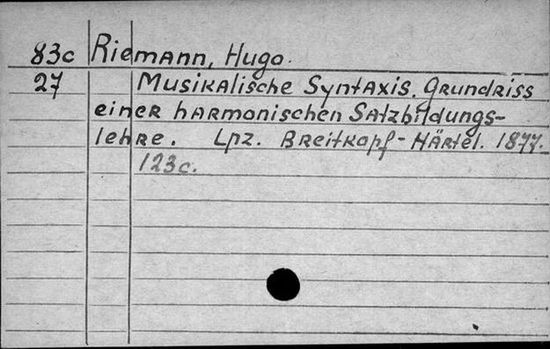 83c Riemann, Hugo.
27 Musikalische Syntaxis. Grundriss
einer harmonischen Satzbildungs-
lehre. Lpz. Breitkopf-Härtel. 1877.
123c.